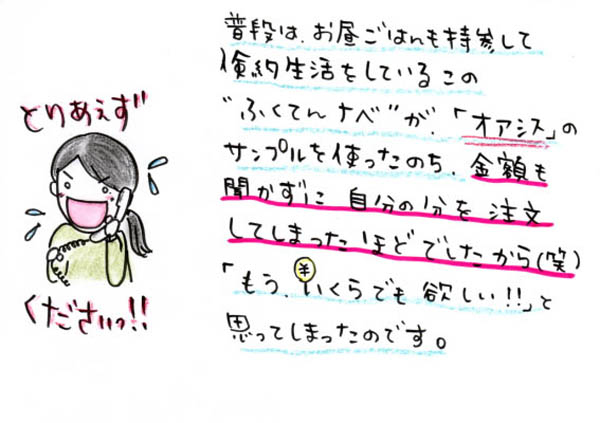 普段は、お昼ごはんも持参して
倹約生活をしているこの
"ふくてんナベ"が、「オアシス」の
サンプルを使ったのち、金額も
聞かずに自分の分を注文
してしまったほどでしたから(笑)
¥
「もう、いくらでも欲しい!!」と
思ってしまったのです。
とりあえず
くださいっ!!